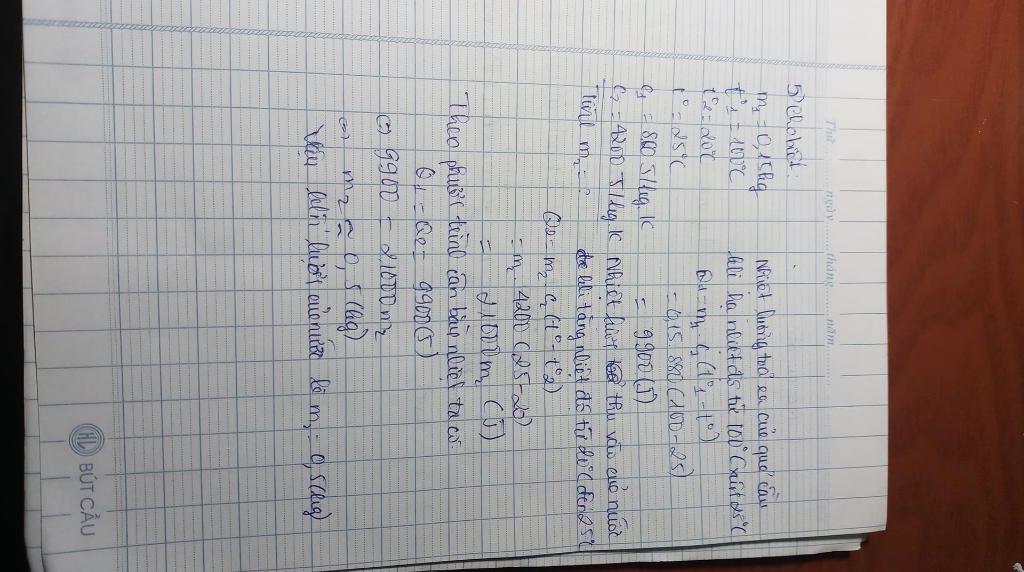 Thứ ........ ngày ........ tháng ........ năm ........
5) Cho biết:
m₁ = 0,15kg
t°₁ = 100°C
t°₂ = 20°C
t° = 25°C
c₁ = 880 J/kg.K
c₂ = 4200 J/kg.K
Tính m₂ = ?
Nhiệt lượng toả ra của quả cầu
khi hạ nhiệt độ từ 100°C xuống 25°C
Q₁ = m₁ c₁ (t°₁ - t°)
= 0,15.880 (100 - 25)
= 9900 (J)
Nhiệt lượng thu vào của nước
khi tăng nhiệt độ từ 20°C đến 25°C
Q₂ = m₂ c₂ (t° - t°₂)
= m₂ 4200 (25 - 20)
= 21000 m₂ (J)
Theo phương trình cân bằng nhiệt ta có:
Q₁ = Q₂ = 9900 (J)
(=) 9900 = 21000 m₂
(=) m₂ ≈ 0,5 (kg)
Vậy khối lượng của nước là m₂ = 0,5 (kg)
HL BÚT CẦU